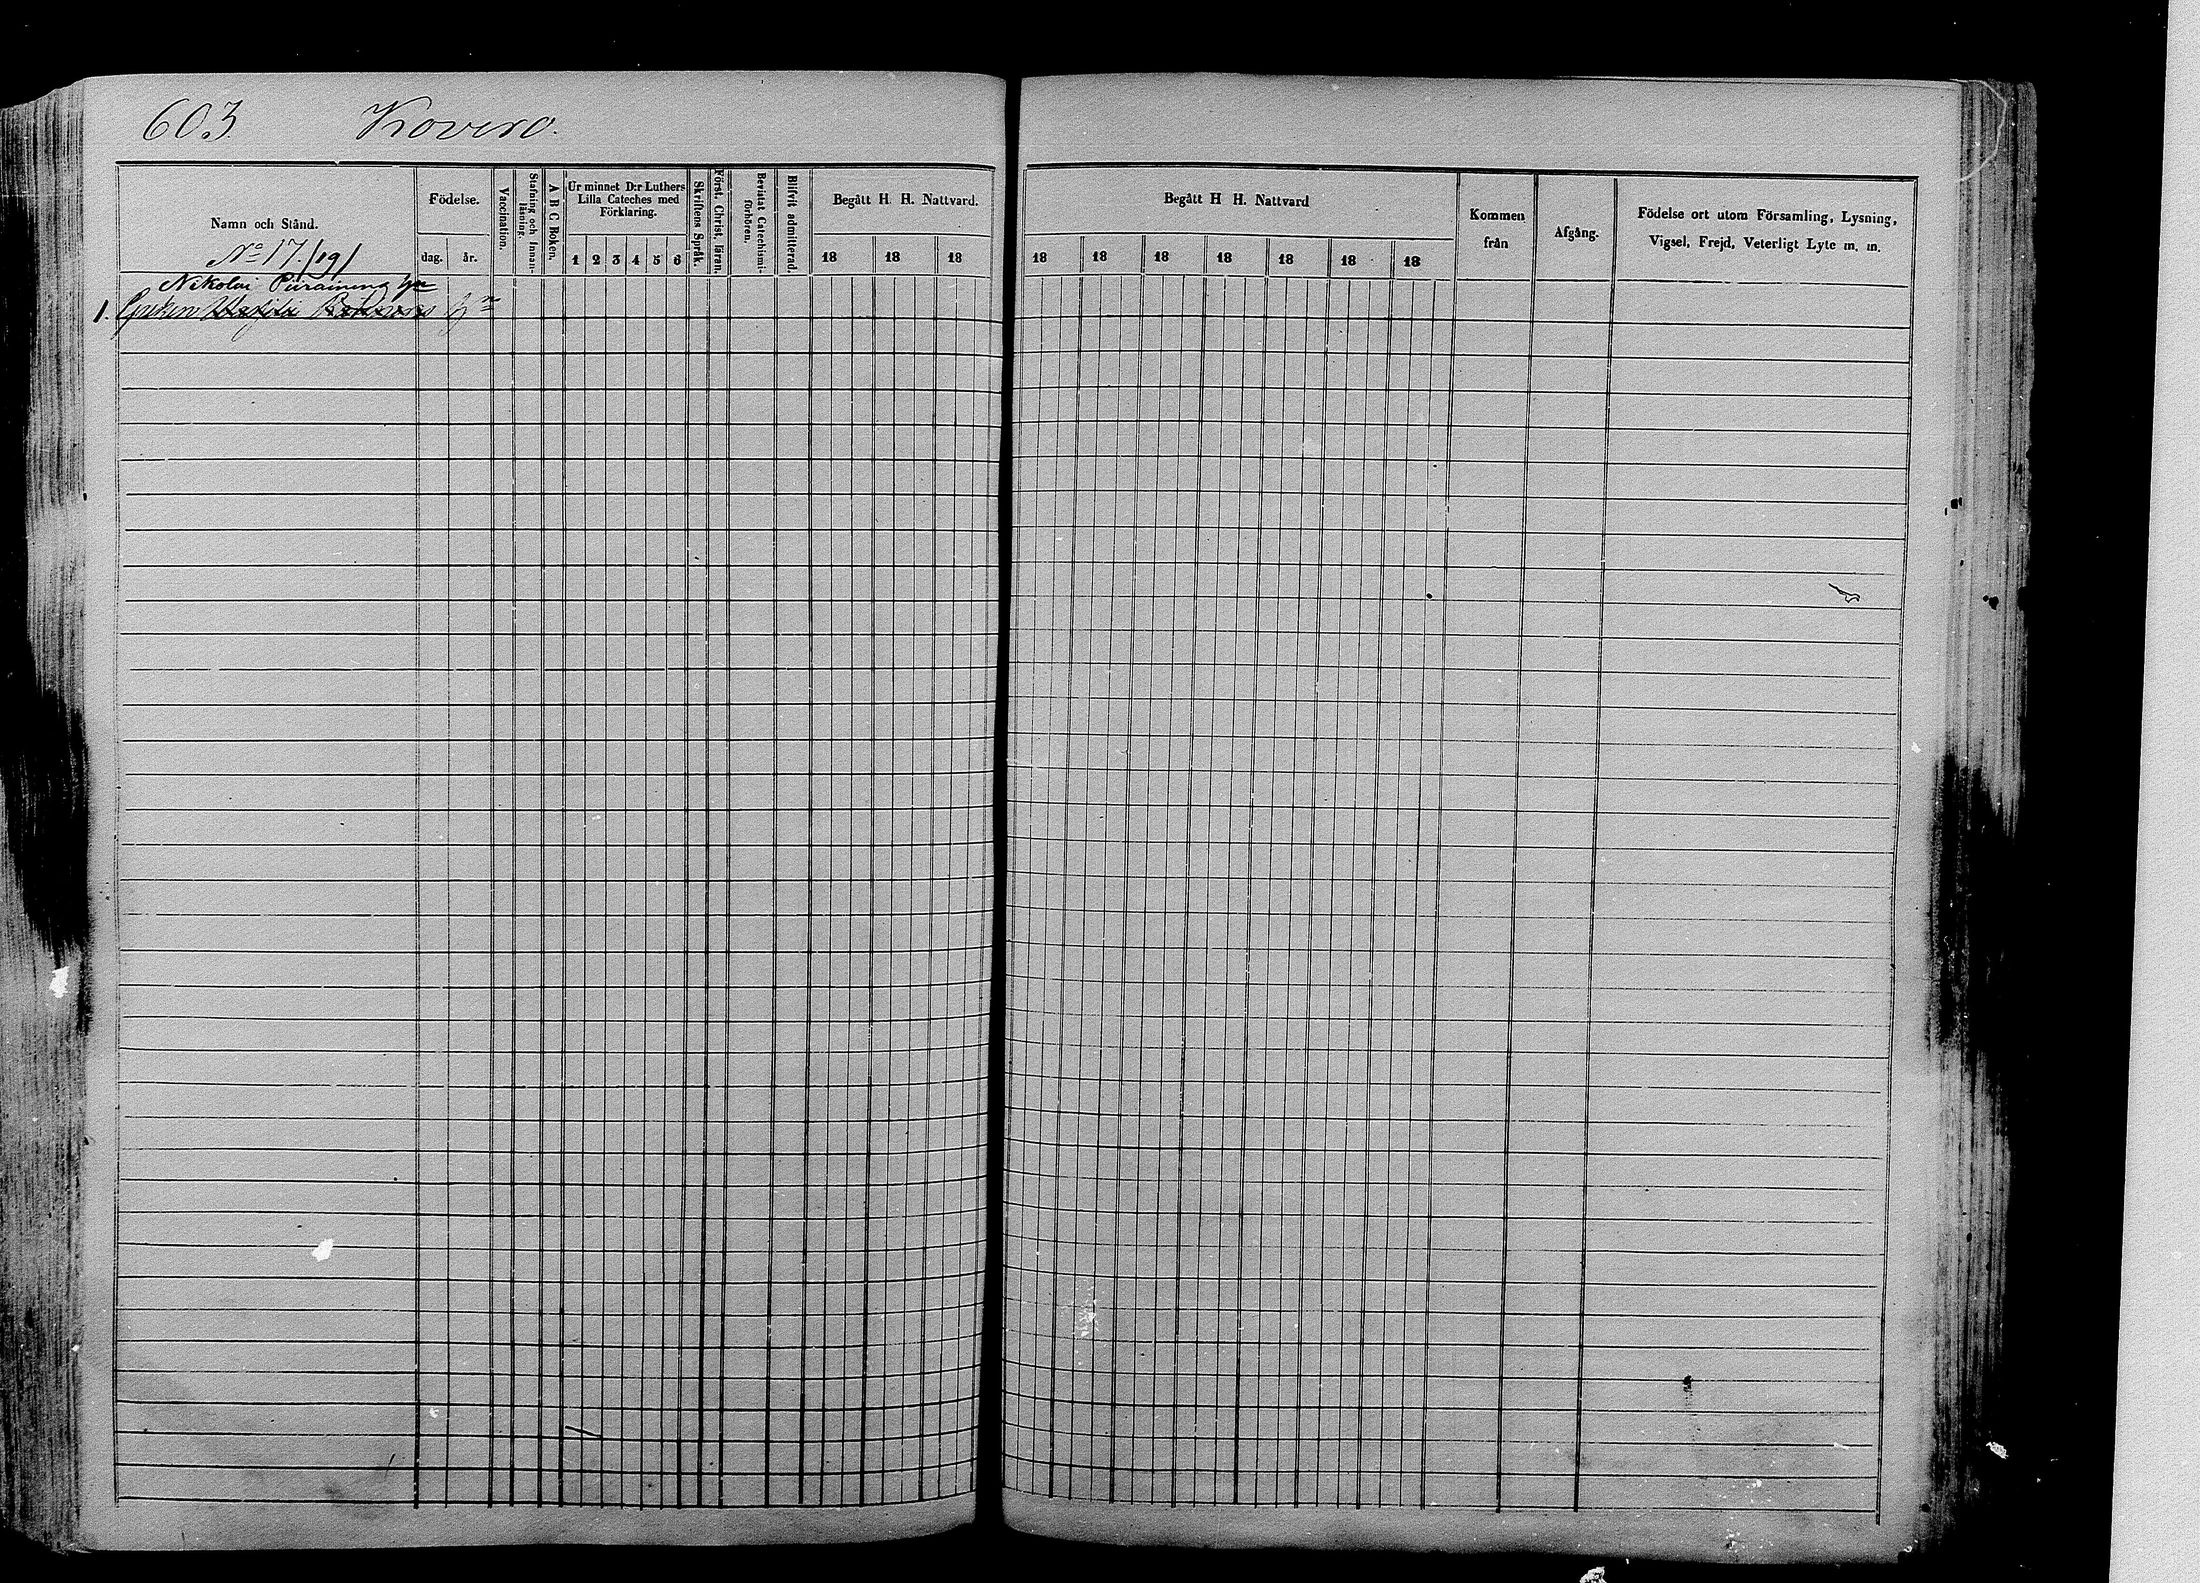 603 Kovero.
Namn och Stånd.
Födelse.
dag. år.
Vaccination.
Stafning och Innanläsning.
A B C Boken.
Ur minnet D:r Luthers
Lilla Cateches med
Förklaring.
1 2 3 4 5 6
Skriftens Språk.
Först. Christ. läran.
Bevistat Catechismiförhören.
Blifvit admitterad.
Begått H. H. Nattvard.
18 18 18
Begått H. H. Nattvard
18 18 18 18 18 18 18
Kommen
från
Afgång.
Födelse ort utom Församling, Lysning,
Vigsel, Frejd, Veterligt Lyte m. m.
No 17. /19/
Nikolai Puirainens hn
1. Enkan hn